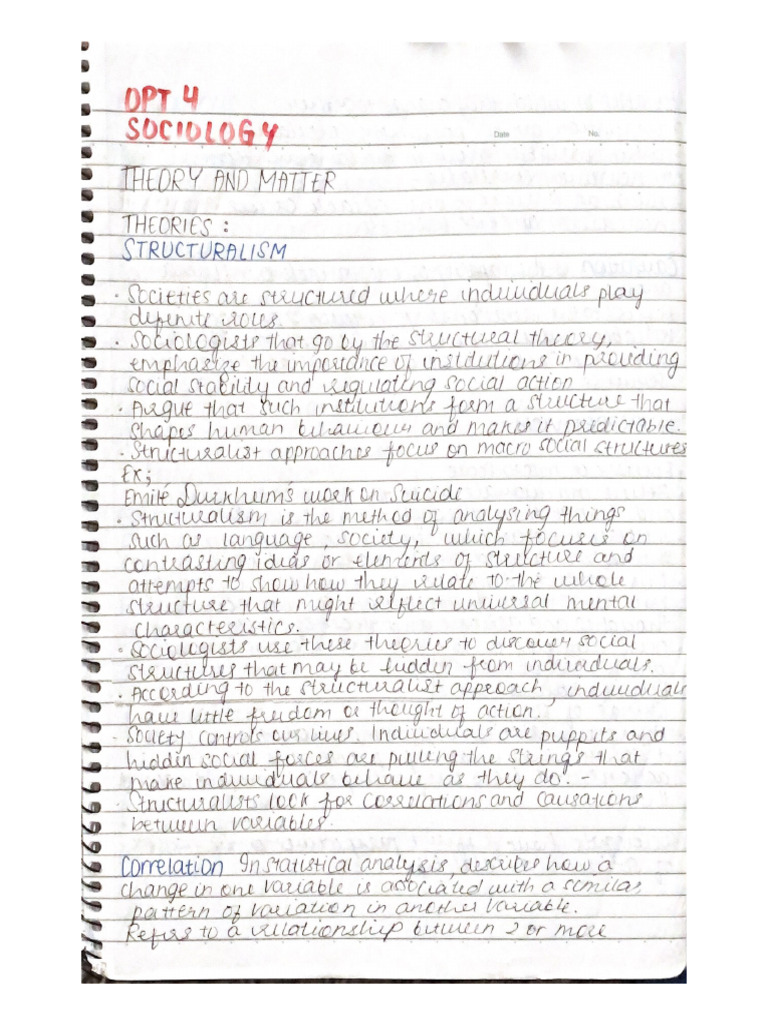 OPT 4
SOCIOLOGY
Date No.
THEORY AND MATTER
THEORIES :
STRUCTURALISM
· Societies are structured where individuals play
definite roles.
· Sociologists that go by the structural theory,
emphasize the importance of institutions in providing
social stability and regulating social action
· Argue that such institutions form a structure that
shapes human behaviour and makes it predictable.
· Structuralist approaches focus on macro social structures
Ex;
Emilé Durkheim's work on Suicide
· Structuralism is the method of analysing things
such as language, society, which focuses on
contrasting ideas or elements of structure and
attempts to show how they relate to the whole
structure that might reflect universal mental
characteristics.
· Sociologists use these theories to discover social
structures that may be hidden from individuals.
· According to the structuralist approach, individuals
have little freedom or thought of action.
· Society controls our lives. Individuals are puppets and
hidden social forces are pulling the strings that
make individuals behave as they do. -
· Structuralists look for correlations and causations
between variables.
Correlation In statistical analysis, describes how a
change in one variable is associated with a similar
pattern of variation in another variable.
Refers to a relationship between 2 or more